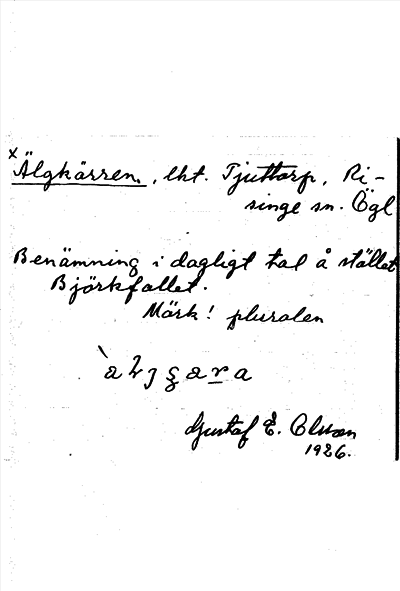 x Älgkärren, lht. Tjuttorp, Ri-
singe sn. Ögl
Benämning i dagligt tal å stället
Björkfallet.
Märk! pluralen
Gustaf E. Olsson
1926.